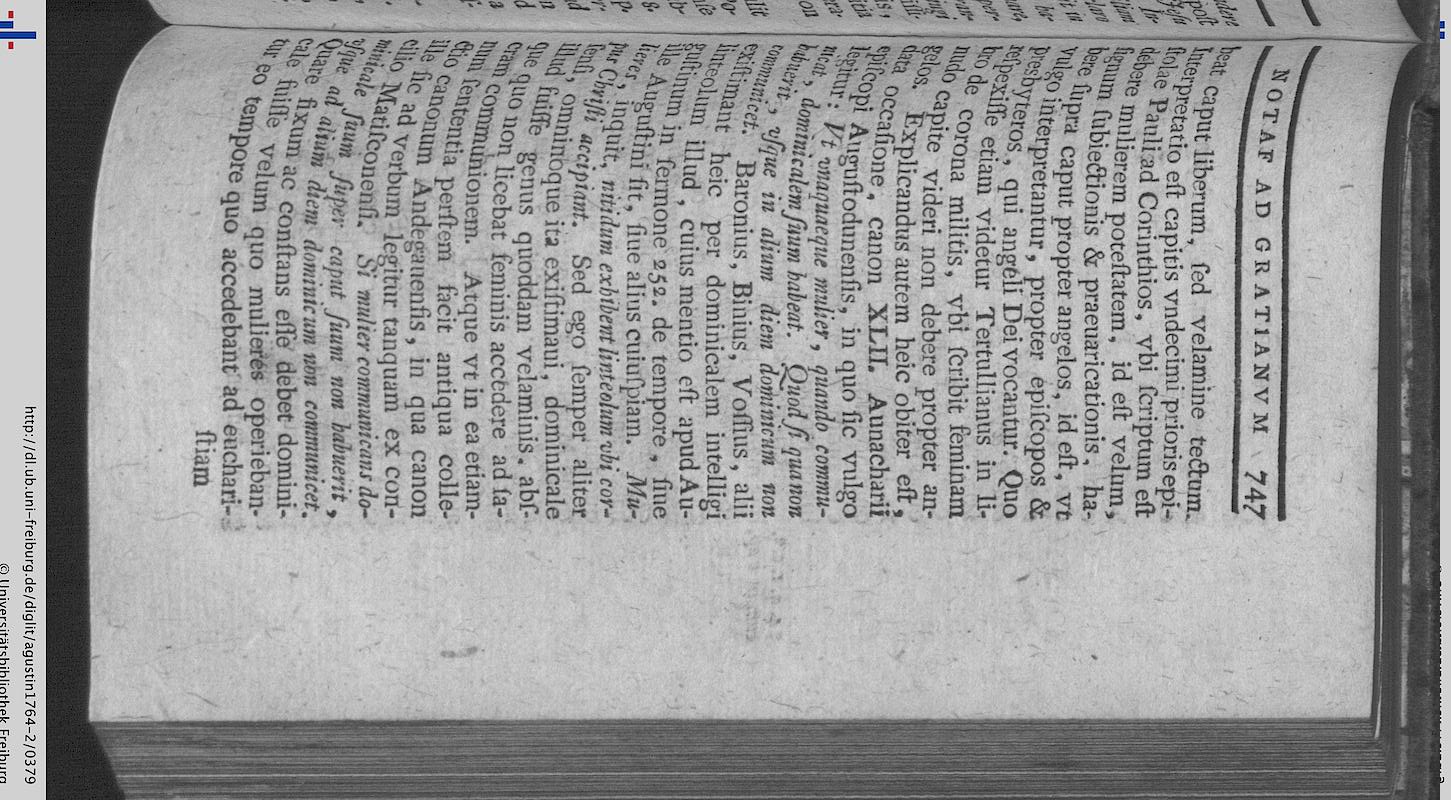 NOTAE AD GRATIANVM 747
beat caput liberum, ſed velamine tectum.
Interpretatio eſt capitis vndecimi prioris epi-
ſtolae Pauli ad Corinthios, vbi ſcriptum eſt
debere mulierem poteſtatem, id eſt velum,
ſignum ſubiectionis & praeuaricationis, ha-
bere ſupra caput propter angelos, id eſt, vt
vulgo interpretantur, propter epiſcopos &
presbyteros, qui angeli Dei vocantur. Quo
reſpexiſſe etiam videtur Tertullianus in li-
bro de corona militis, vbi ſcribit feminam
nudo capite videri non debere propter an-
gelos. Explicandus autem heic obiter eſt,
data occaſione, canon XLII. Aunacharii
epiſcopi Auguſtodunenſis, in quo ſic vulgo
legitur: Vt vnaquaeque mulier, quando commu-
nicat, dominicalem ſuum habeat. Quod ſi qua non
habuerit, vſque in alium diem dominicum non
communicet. Baronius, Binius, Voſſius, alii
exiſtimant heic per dominicalem intelligi
linteolum illud, cuius mentio eſt apud Au-
guſtinum in ſermone 252. de tempore, ſiue
ille Auguſtini ſit, ſiue alius cuiuſpiam. Mu-
lieres, inquit, nitidum exhibent linteolum vbi cor-
pus Chriſti accipiant. Sed ego ſemper aliter
ſenſi, omninoque ita exiſtimaui, dominicale
illud fuiſſe genus quoddam velaminis, abſ-
que quo non licebat feminis accedere ad ſa-
cram communionem. Atque vt in ea etiam-
num ſententia perſtem facit antiqua colle-
ctio canonum Andegauenſis, in qua canon
ille ſic ad verbum legitur tanquam ex con-
cilio Matiſconenſi. Si mulier communicans do-
minicale ſuum ſuper caput ſuum non habuerit,
vſque ad alium diem dominicum non communicet.
Quare fixum ac conſtans eſſe debet domini-
cale fuiſſe velum quo mulieres operieban-
tur eo tempore quo accedebant ad euchari-
ſtiam
http://dl.ub.uni-freiburg.de/diglit/agustin1764-2/0379
© Universitätsbibliothek Freiburg